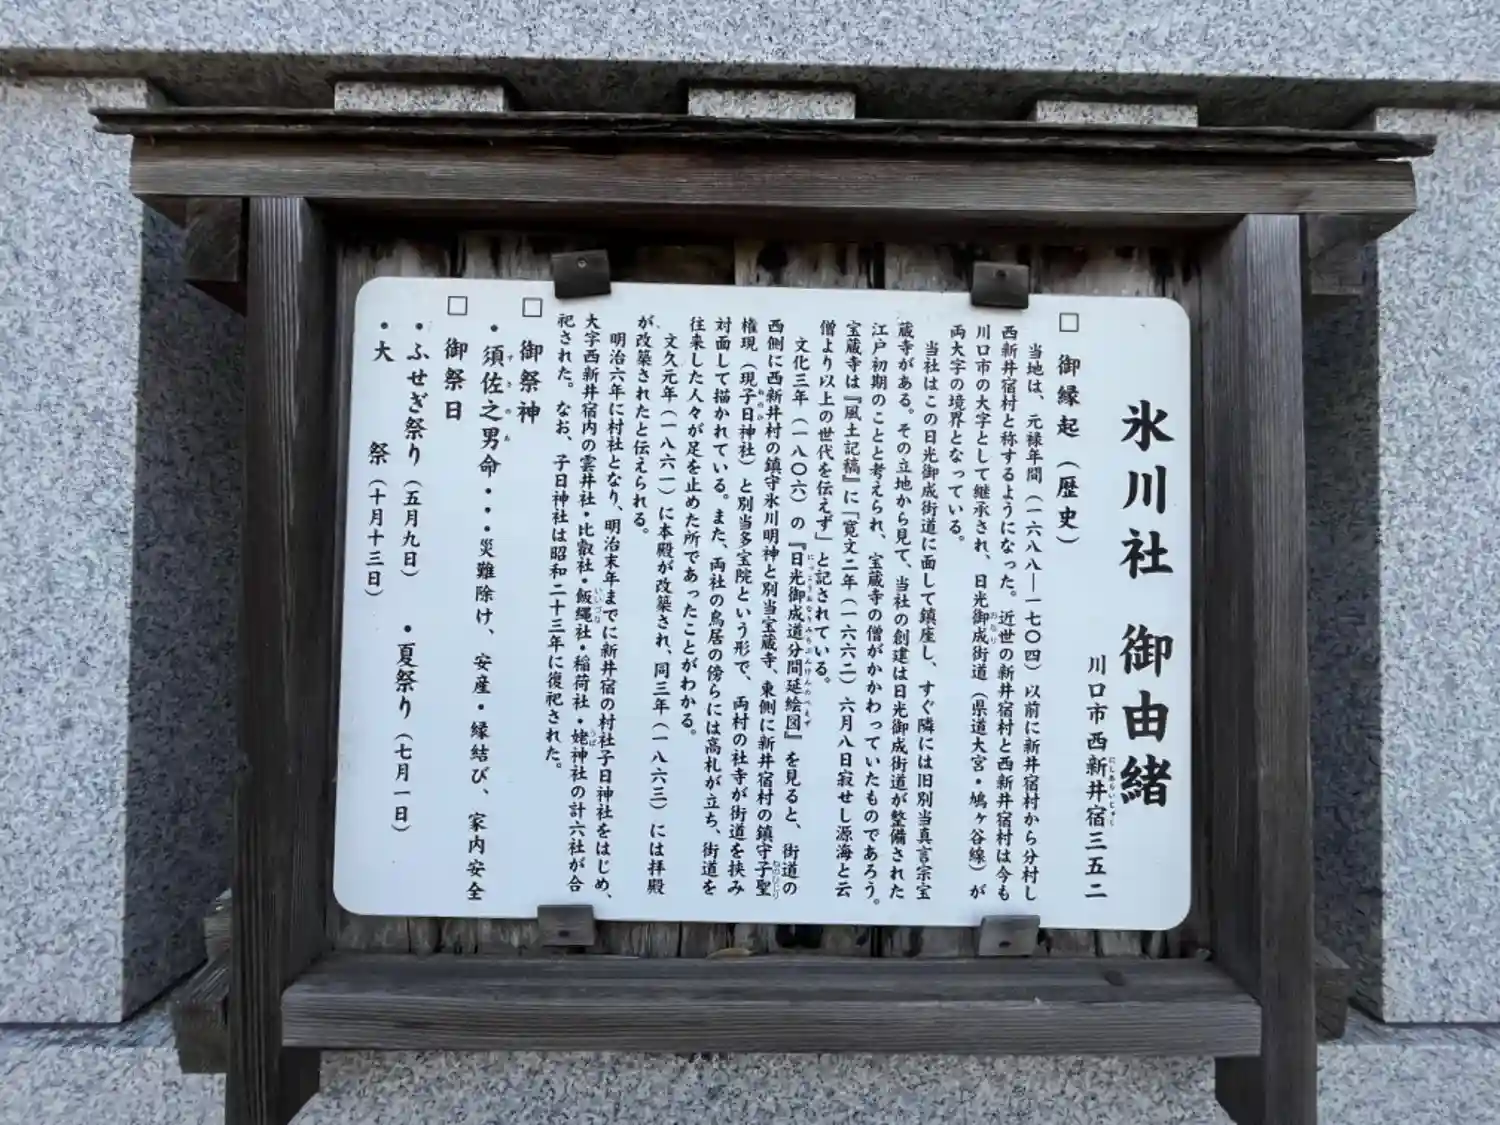 氷川社 御由緒
川口市西新井宿三五二
□ 御縁起(歴史)
当地は、元禄年間(一六八八―一七〇四)以前に新井宿村から分村し
西新井宿村と称するようになった。近世の新井宿村と西新井宿村は今も
川口市の大字として継承され、日光御成街道(県道大宮・鳩ヶ谷線)が
両大字の境界となっている。
当社はこの日光御成街道に面して鎮座し、すぐ隣には旧別当真言宗宝
蔵寺がある。その立地から見て、当社の創建は日光御成街道が整備された
江戸初期のことと考えられ、宝蔵寺の僧がかかわっていたものであろう。
宝蔵寺は『風土記稿』に「寛文二年(一六六二)六月八日寂せし源海と云
僧より以上の世代を伝えず」と記されている。
文化三年(一八〇六)の『日光御成道分間延絵図』を見ると、街道の
西側に西新井村の鎮守氷川明神と別当宝蔵寺、東側に新井宿村の鎮守子聖
権現(現子日神社)と別当多宝院という形で、両村の社寺が街道を挟み
対面して描かれている。また、両社の鳥居の傍らには高札が立ち、街道を
往来した人々が足を止めた所であったことがわかる。
文久元年(一八六一)に本殿が改築され、同三年(一八六三)には拝殿
が改築されたと伝えられる。
明治六年に村社となり、明治末年までに新井宿の村社子日神社をはじめ、
大字西新井宿内の雲井社・比叡社・飯縄社・稲荷社・姥神社の計六社が合
祀された。なお、子日神社は昭和二十三年に復祀された。
□ 御祭神
・須佐之男命・・・災難除け、安産・縁結び、家内安全
□ 御祭日
・ふせぎ祭り(五月九日) ・夏祭り(七月一日)
・大 祭(十月十三日)